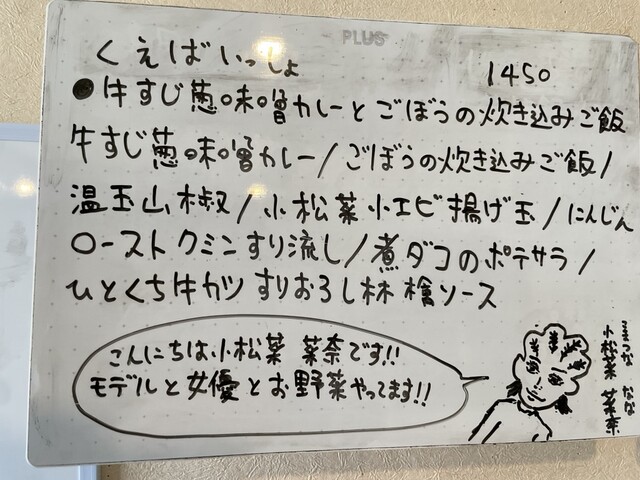 PLUS
くえばいっしょ
1450
●牛すじ葱味噌カレーとごぼうの炊き込みご飯
牛すじ葱味噌カレー/ごぼうの炊き込みご飯/
温玉山椒/小松菜小エビ揚げ玉/にんじん
ローストクミンすり流し/煮ダコのポテサラ/
ひとくち牛カツすりおろし林檎ソース
こんにちは小松菜 菜奈です!!
モデルと女優とお野菜やってます!!
こまつな なな
小松菜 菜奈